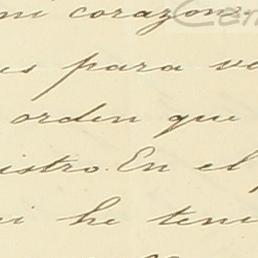 mi corazon.
es para ve
orden que
istro. En el
i he teni